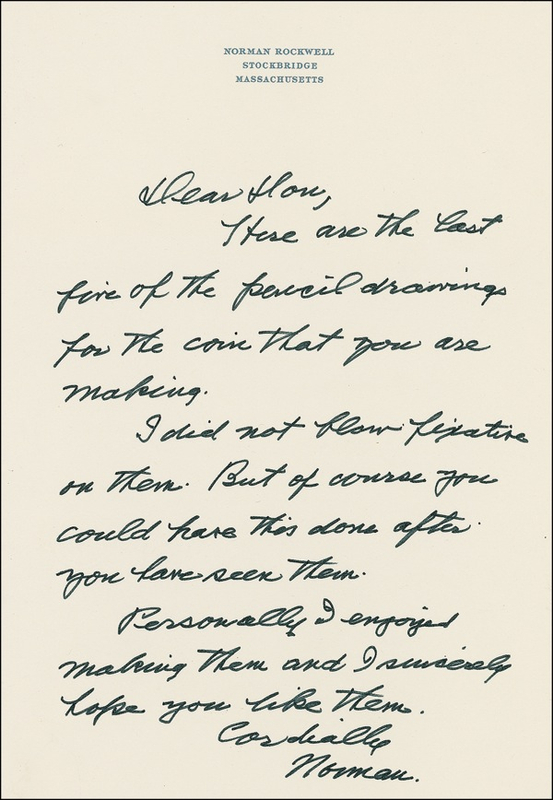 NORMAN ROCKWELL
STOCKBRIDGE
MASSACHUSETTS
Dear Don,
Here are the last
five of the pencil drawings
for the coin that you are
making.
I did not blow fixative
on them. But of course you
could have this done after
you have seen them.
Personally I enjoyed
making them and I sincerely
hope you like them.
Cordially
Norman.